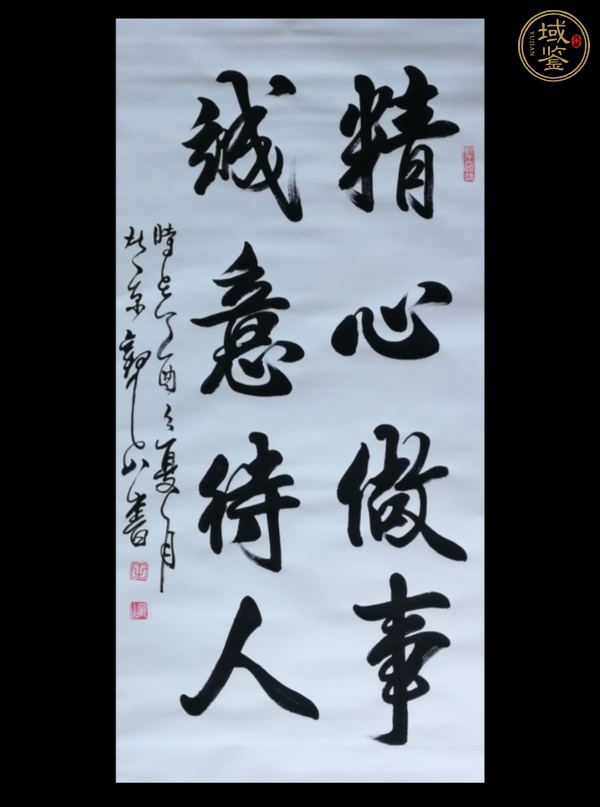 精心做事
誠意待人
時在丁酉之夏月
於京郭山書
域鉴
YUJIAN